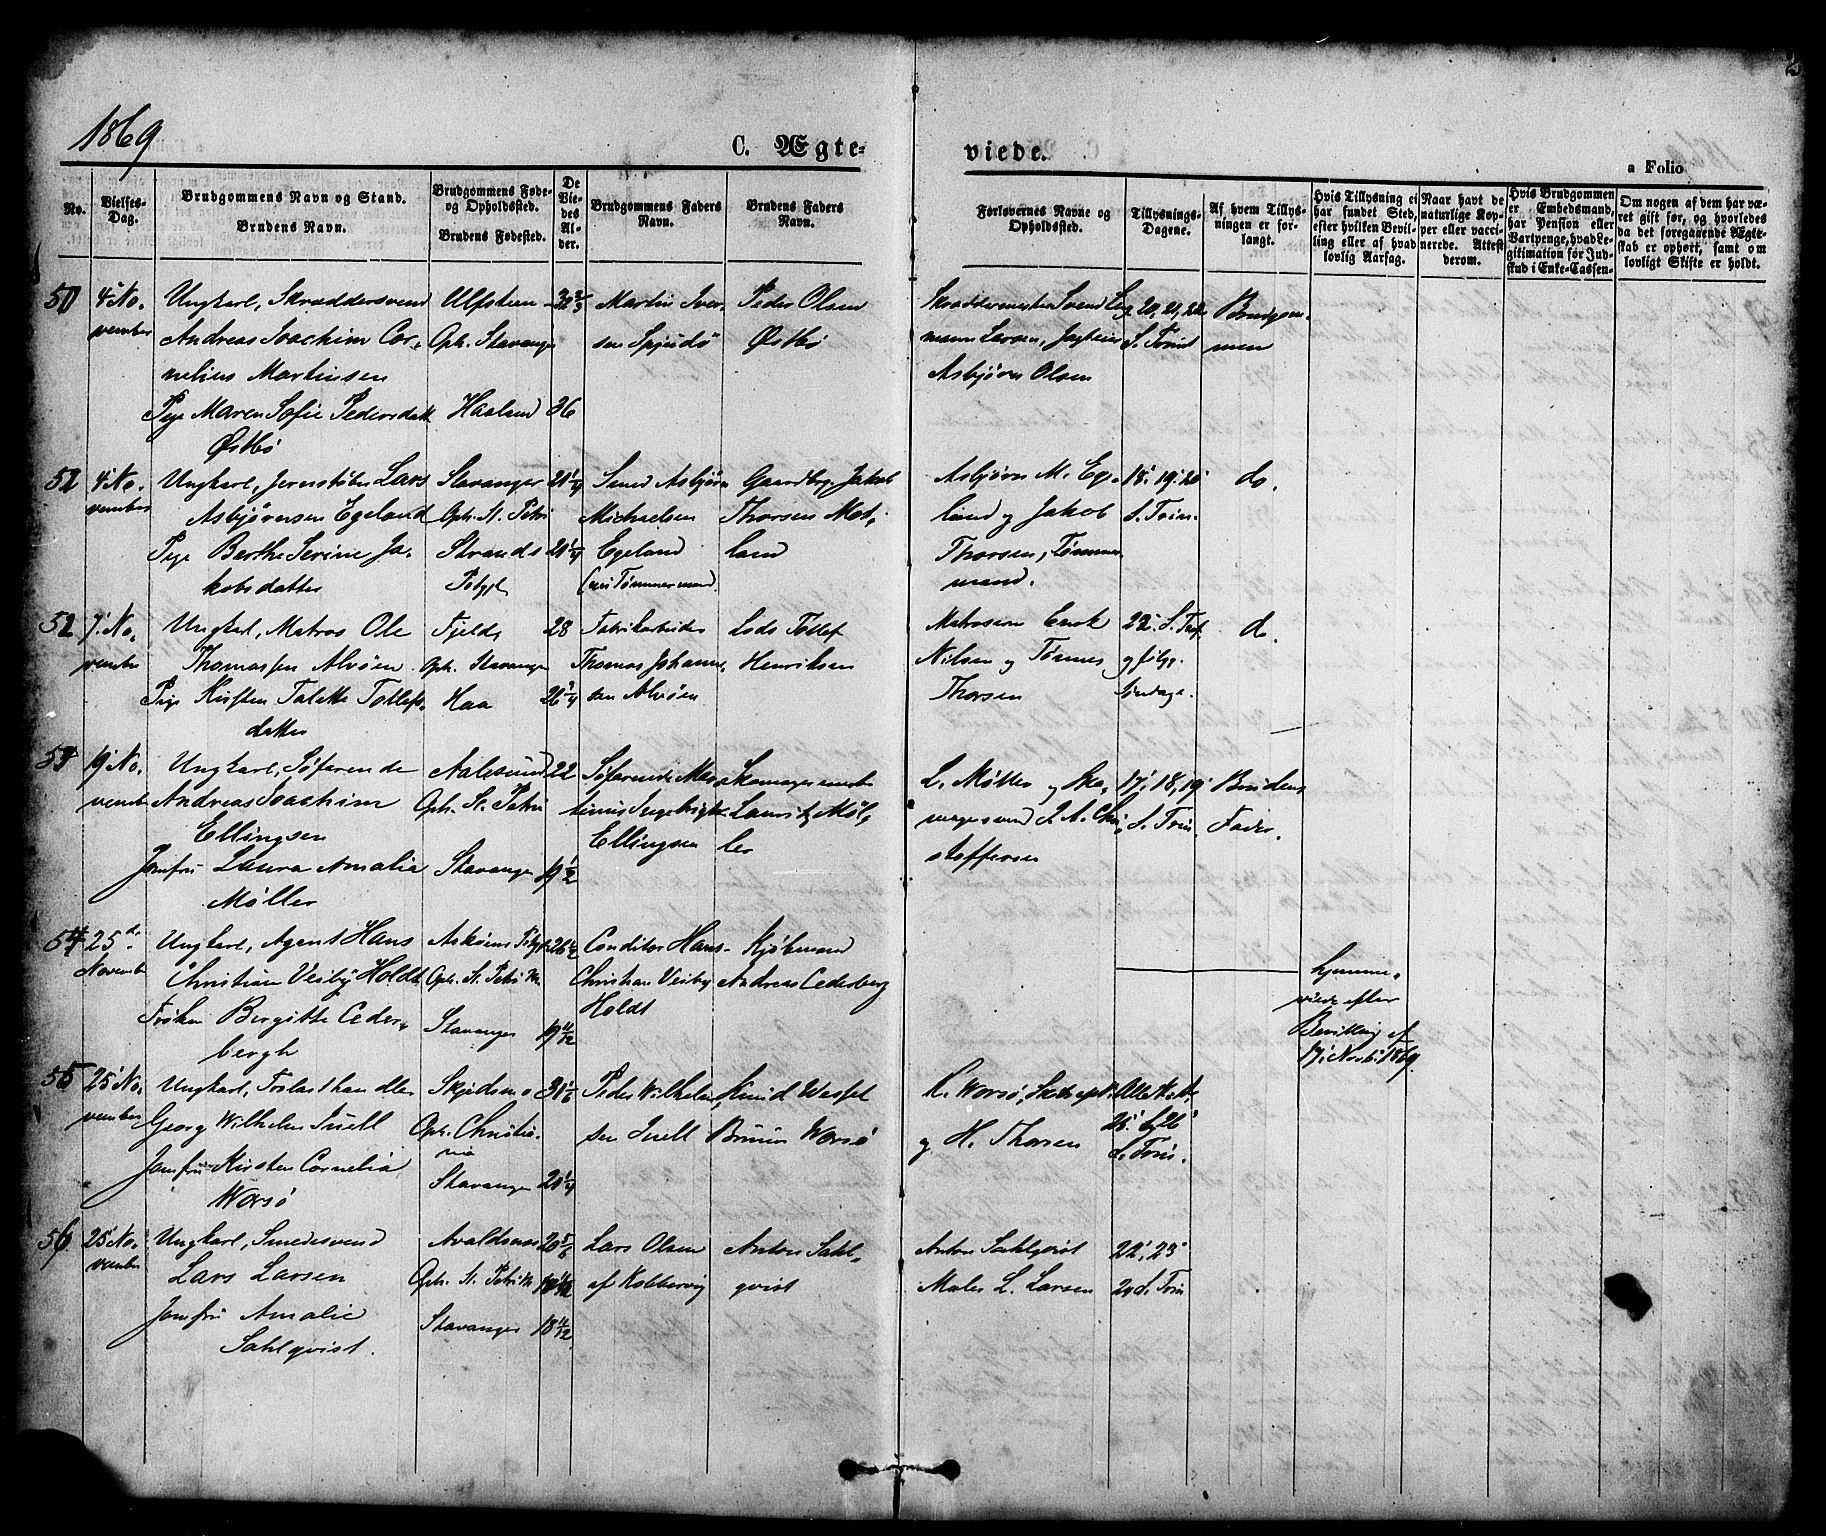 1869
C. Ægte-
viede.
a Folio
No.
Vielses-
Dag.
Brudgommens Navn og Stand.
Brudens Navn.
Brudgommens Føde-
og Opholdssted.
Brudens Fødested.
De
Vie-
des
Al-
der.
Brudgommens Faders
Navn.
Brudens Faders
Navn.
Forlovernes Navne og
Opholdssted.
Tillysnings-
Dagene.
Af hvem Tillys-
ningen er for-
langt.
Hvis Tillysning ei
har fundet Sted,
efter hvilken Bevil-
ling eller af hvad
lovlig Aarsag.
Naar havt de
naturlige Kop-
per eller vacci-
nerede. Attest
derom.
Hvis Brudgommen
er Embedsmand,
har Pension eller
Vartpenge, hvad Le-
gitimation for Ind-
skud i Enke-Cassen-
Om nogen af dem har væ-
ret gift før, og hvorledes
da det foregaaende Ægte-
skab er ophørt, samt om
lovligt Skifte er holdt.
50
4' No-
vember
Ungkarl, Skræddersvend
Andreas Joachim Cor-
nelius Martinsen
Pige Maren Sofie Pedersdatt
Østbø
Oph. Stavanger
Haaland
36
Martin Iver-
sen
Peder Olsen
Østbø
Skræddermester Svend
Larsen,
Asbjørn Olsen
20, 21, 22
S. Trinit
Brudgom-
men
51
4' No-
vember
Ungkarl, Jernstøber Lars
Asbjørnsen Egeland
Pige Berthe Serine Ja-
kobsdatter
Stavanger
Oph. St. Petri
Strands
Pstgjd
21 1/4
21 1/4
Smed Asbjørn
Michaelsen
Egeland
(nu Tømmermand)
Gaardbrg. Jakob
Thorsen Mod-
land
Asbjørn M. Ege-
land og Jakob
Thorsen, Tømmer-
mand.
18' 19' 20'
S. Trin.
do.
52
7' No-
vember
Ungkarl, Matros Ole
Thomassen Alvøen
Pige Kirsten Talette Tollefs-
datter
Fjeld
Oph. Stavanger
Haa
28
26 3/4
Fabrikarbeider
Thomas Johanne-
sen Alvøen
Lods Tollef
Henriksen
Matroserne Enok
Nilsen og Tønnes
Thorsen
22' S. Trf.
og følg.
Søndage.
do.
53
19' No-
vember
Ungkarl, Søfarende
Andreas Joachim
Ellingsen
Jomfru Laura Amalia
Møller
Aalesund
Oph. St. Petri
Stavanger
22
19 1/2
Søfarende Mar-
tinus Ingebrigt
Ellingsen
Skomagermester
Lauritz Møl-
ler
L. Møller og Sko-
magersvend J. A. Chri-
stoffersen
17', 18', 19'
S. Trin.
Brudens
Fader.
54
25de
November
Ungkarl, Agent Hans
Christian Veiby Holdt
Frøken Birgitte Ceder-
bergh
Askøens Pstgjd
Oph. St. Petri M.
Stavanger
26 1/2
19 11/12
Conditor Hans
Christian Veiby
Holdt
Kjøbmand
Andreas Cederberg
hjemme-
viede efter
Bevilling af
17' Novbr 1869.
55
25' No-
vember
Ungkarl, Trelasthandler
Georg Wilhelm Juell
Jomfru Kirsten Cornelia
Worsø
Skjedsmo
Oph. Christia-
nia
Stavanger
31 1/6
21 1/4
Peder Wilhelm-
sen Juell
Knud Wessel
Bruun Worsø
K. Worsø,
og H. Thorsen
S. Trin.
56
25' No-
vember
Ungkarl, Smedesvend
Lars Larsen
Jomfru Amalie
Sahlqvist.
Avaldsnes
Oph. St. Petri M.
Stavanger
20 5/6
18 11/12
Lars Olsen
af Kobbervig
Anton Sahl-
qvist
Anton Sahlqvist
Maler L. Larsen
22', 23'
24 S. Trin